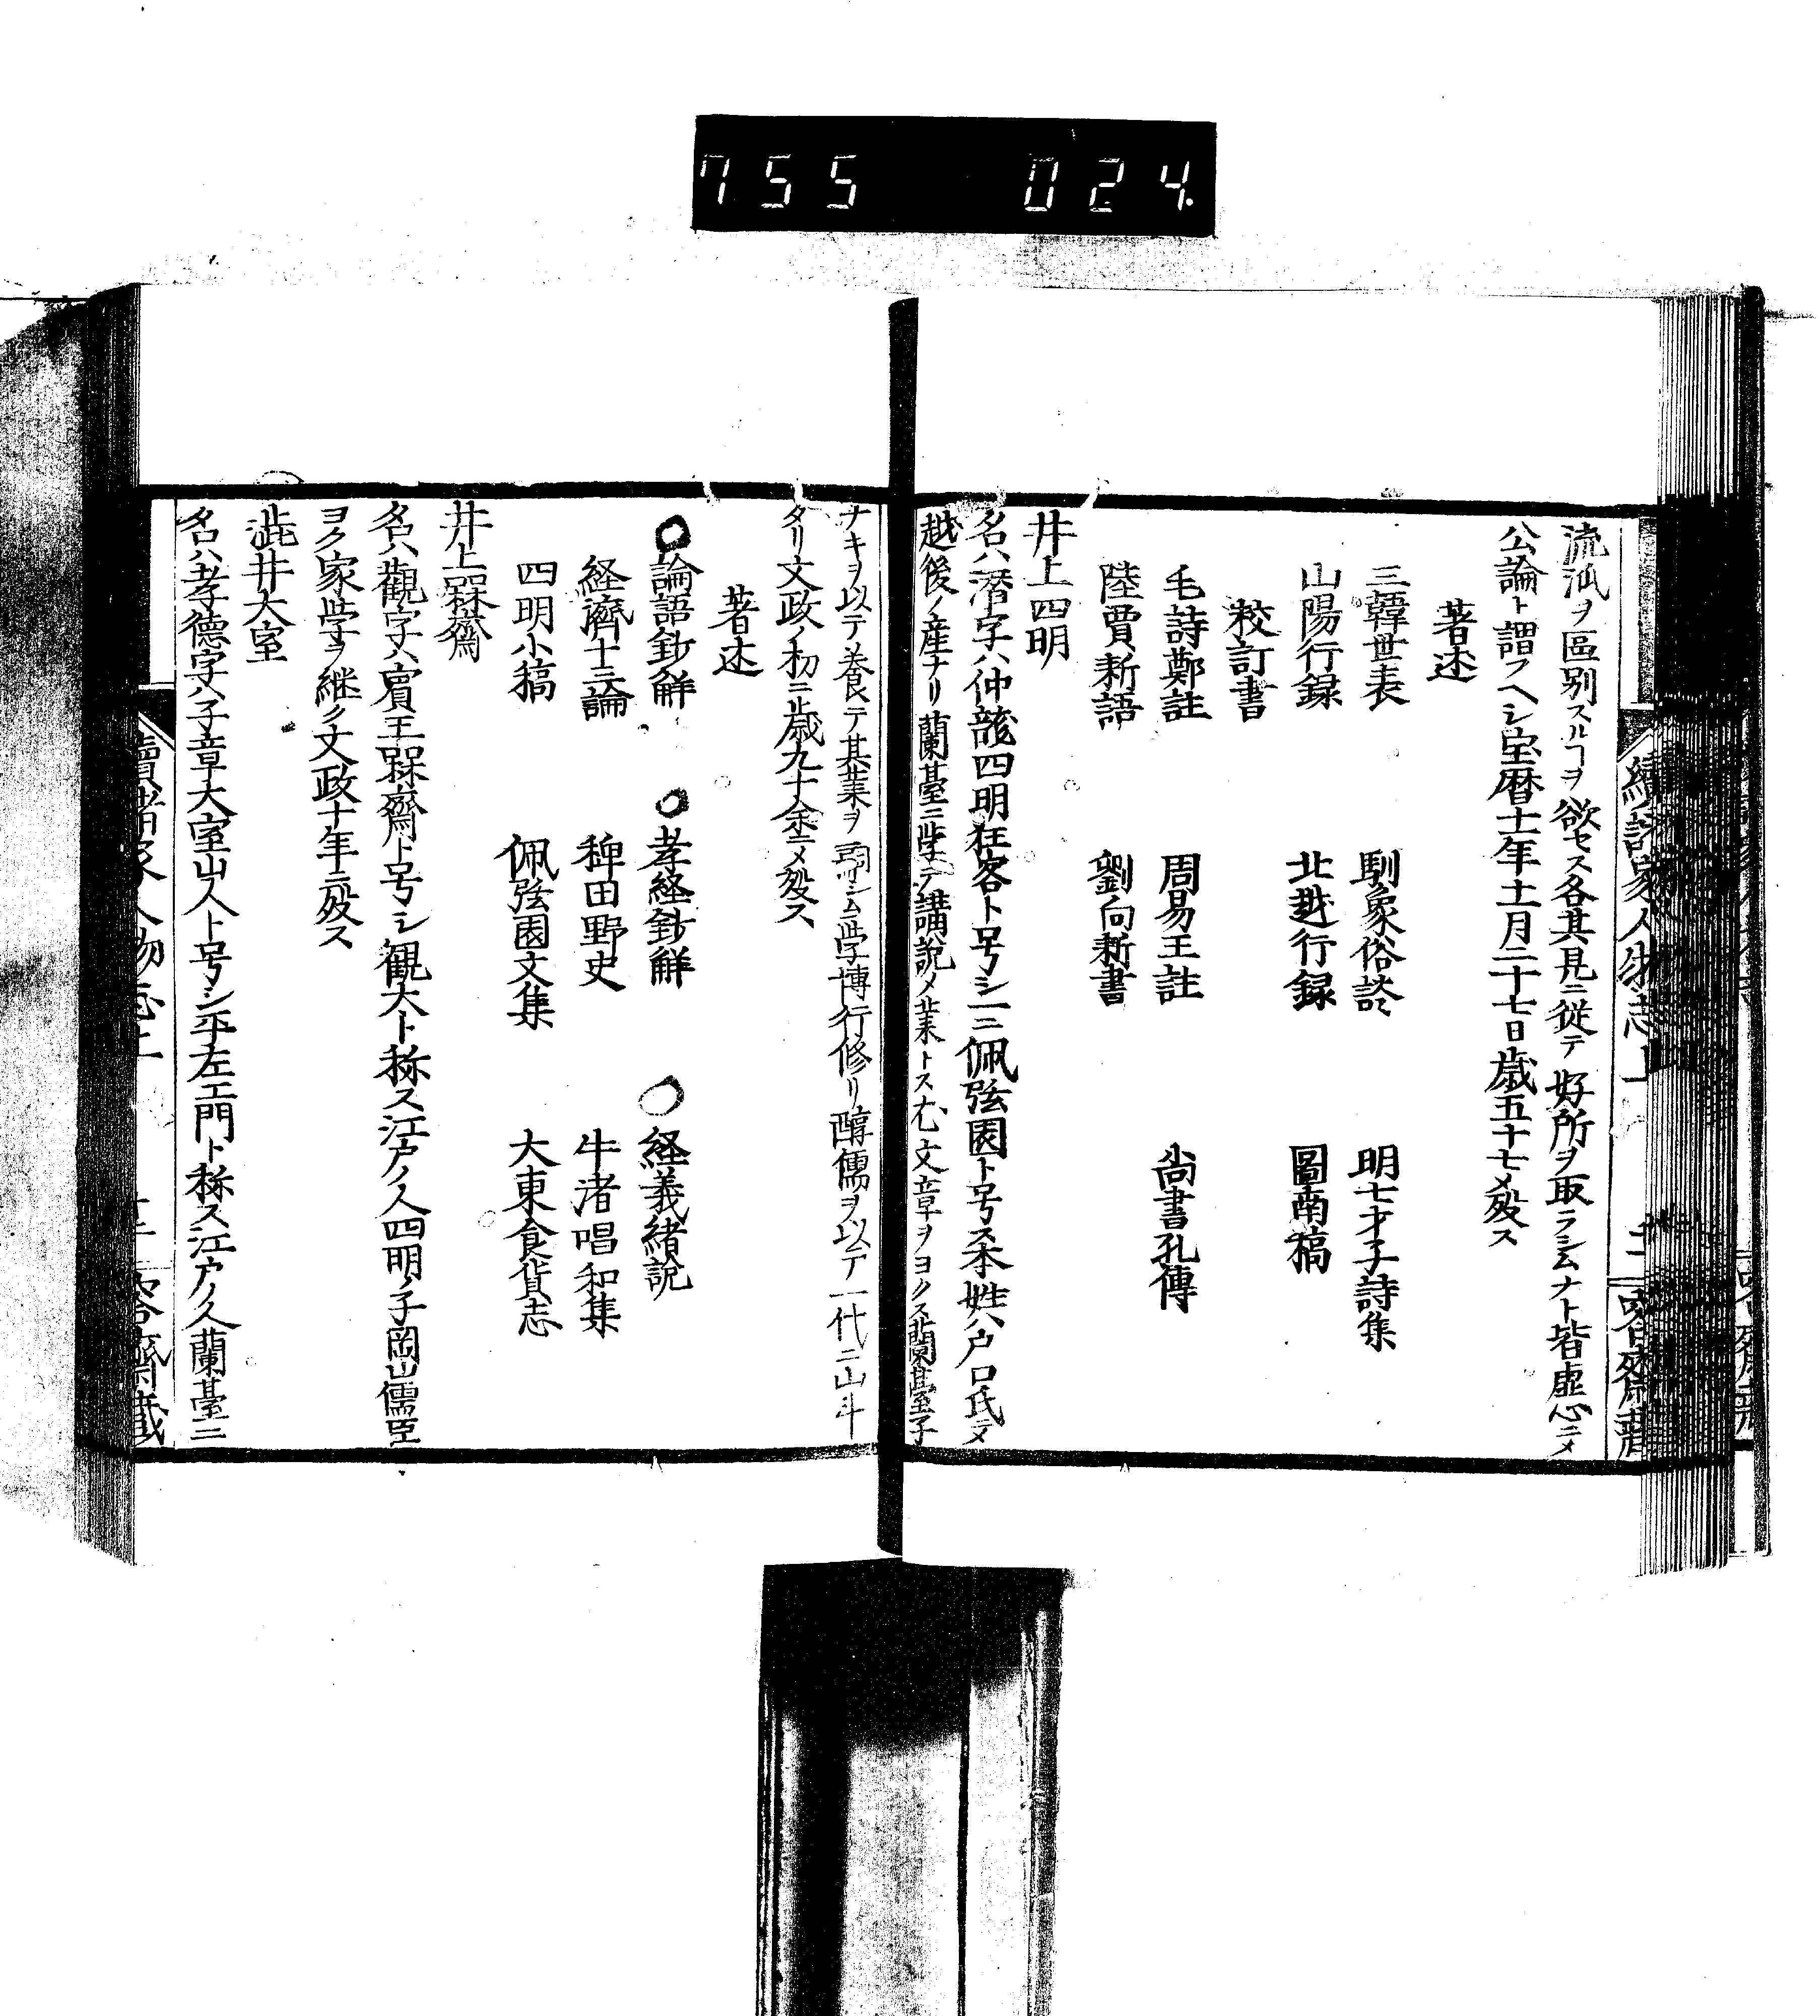 755 024.
流派ヲ區別スルヿヲ欲セス各其見ニ從テ好所ヲ取ラシムナト皆虚心ニメ
公論ト謂フヘシ宝暦十一年十一月二十七日歳五十七メ殁ス
著述
三韓世表 馴象俗談 明七才子詩集
山陽行録 北越行録 圖南稿
校訂書
毛詩鄭註 周易王註 尚書孔傳
陸賈新語 劉向新書
井上四明
名ハ潜字ハ仲龍四明狂客ト号シ一ニ佩弦園ト号ス本姓ハ戸口氏ニテ
越後ノ産ナリ蘭臺ニ学テ講説メ業トス尤文章ヲヨクス蘭臺子
ナキヲ以テ養テ其業ヲ嗣シム学博行修リ醇儒ヲ以テ一代ニ山斗
タリ文政ノ初ニ止歳九十余ニメ殁ス
著述
論語鈔解 孝経鈔解 経義緒說
経濟十二論 稗田野史 牛渚唱和集
四明小稿 佩弦園文集 大東食貨志
井上槑齋
名ハ觀字ハ賓王槑齋ト号シ観大ト称ス江戸ノ人四明ノ子岡山儒臣
ヨク家学ヲ継ク文政十年ニ殁ス
澁井大室
名ハ孝德字ハ子章大室山人ト号シ平左エ門ト称ス江戸ノ人蘭臺ニ